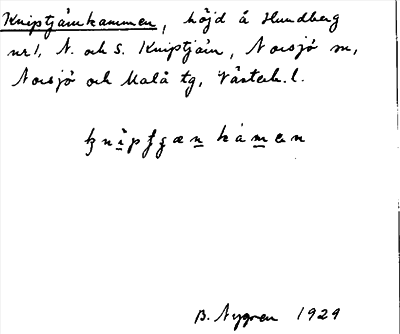 Kniptjärnkammen, höjd å Hundberg
nr 1, N. och S. Kniptjärn, Norsjö sn,
Norsjö och Malå tg, Västerb. l.
B. Nygren 1929